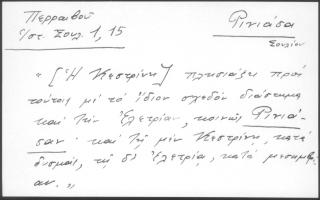 Περραιβοῦ
Ἱστ. Σουλ. 1, 15
Ρινιάσα
Σουλίου
« [Ἡ Κεστρίνη] πλησιάζει πρὸς
τούτοις μὲ τὸ ἴδιον σχεδὸν διάστημα
καὶ τὴν Ἐλετρίαν, κοινῶς Ρινιά-
σαν· καὶ τῇ μὲν Κεστρίνῃ κατὰ
δυσμάς, τῇ δὲ Ἐλετρίᾳ, κατὰ μεσημβρί-
αν. »